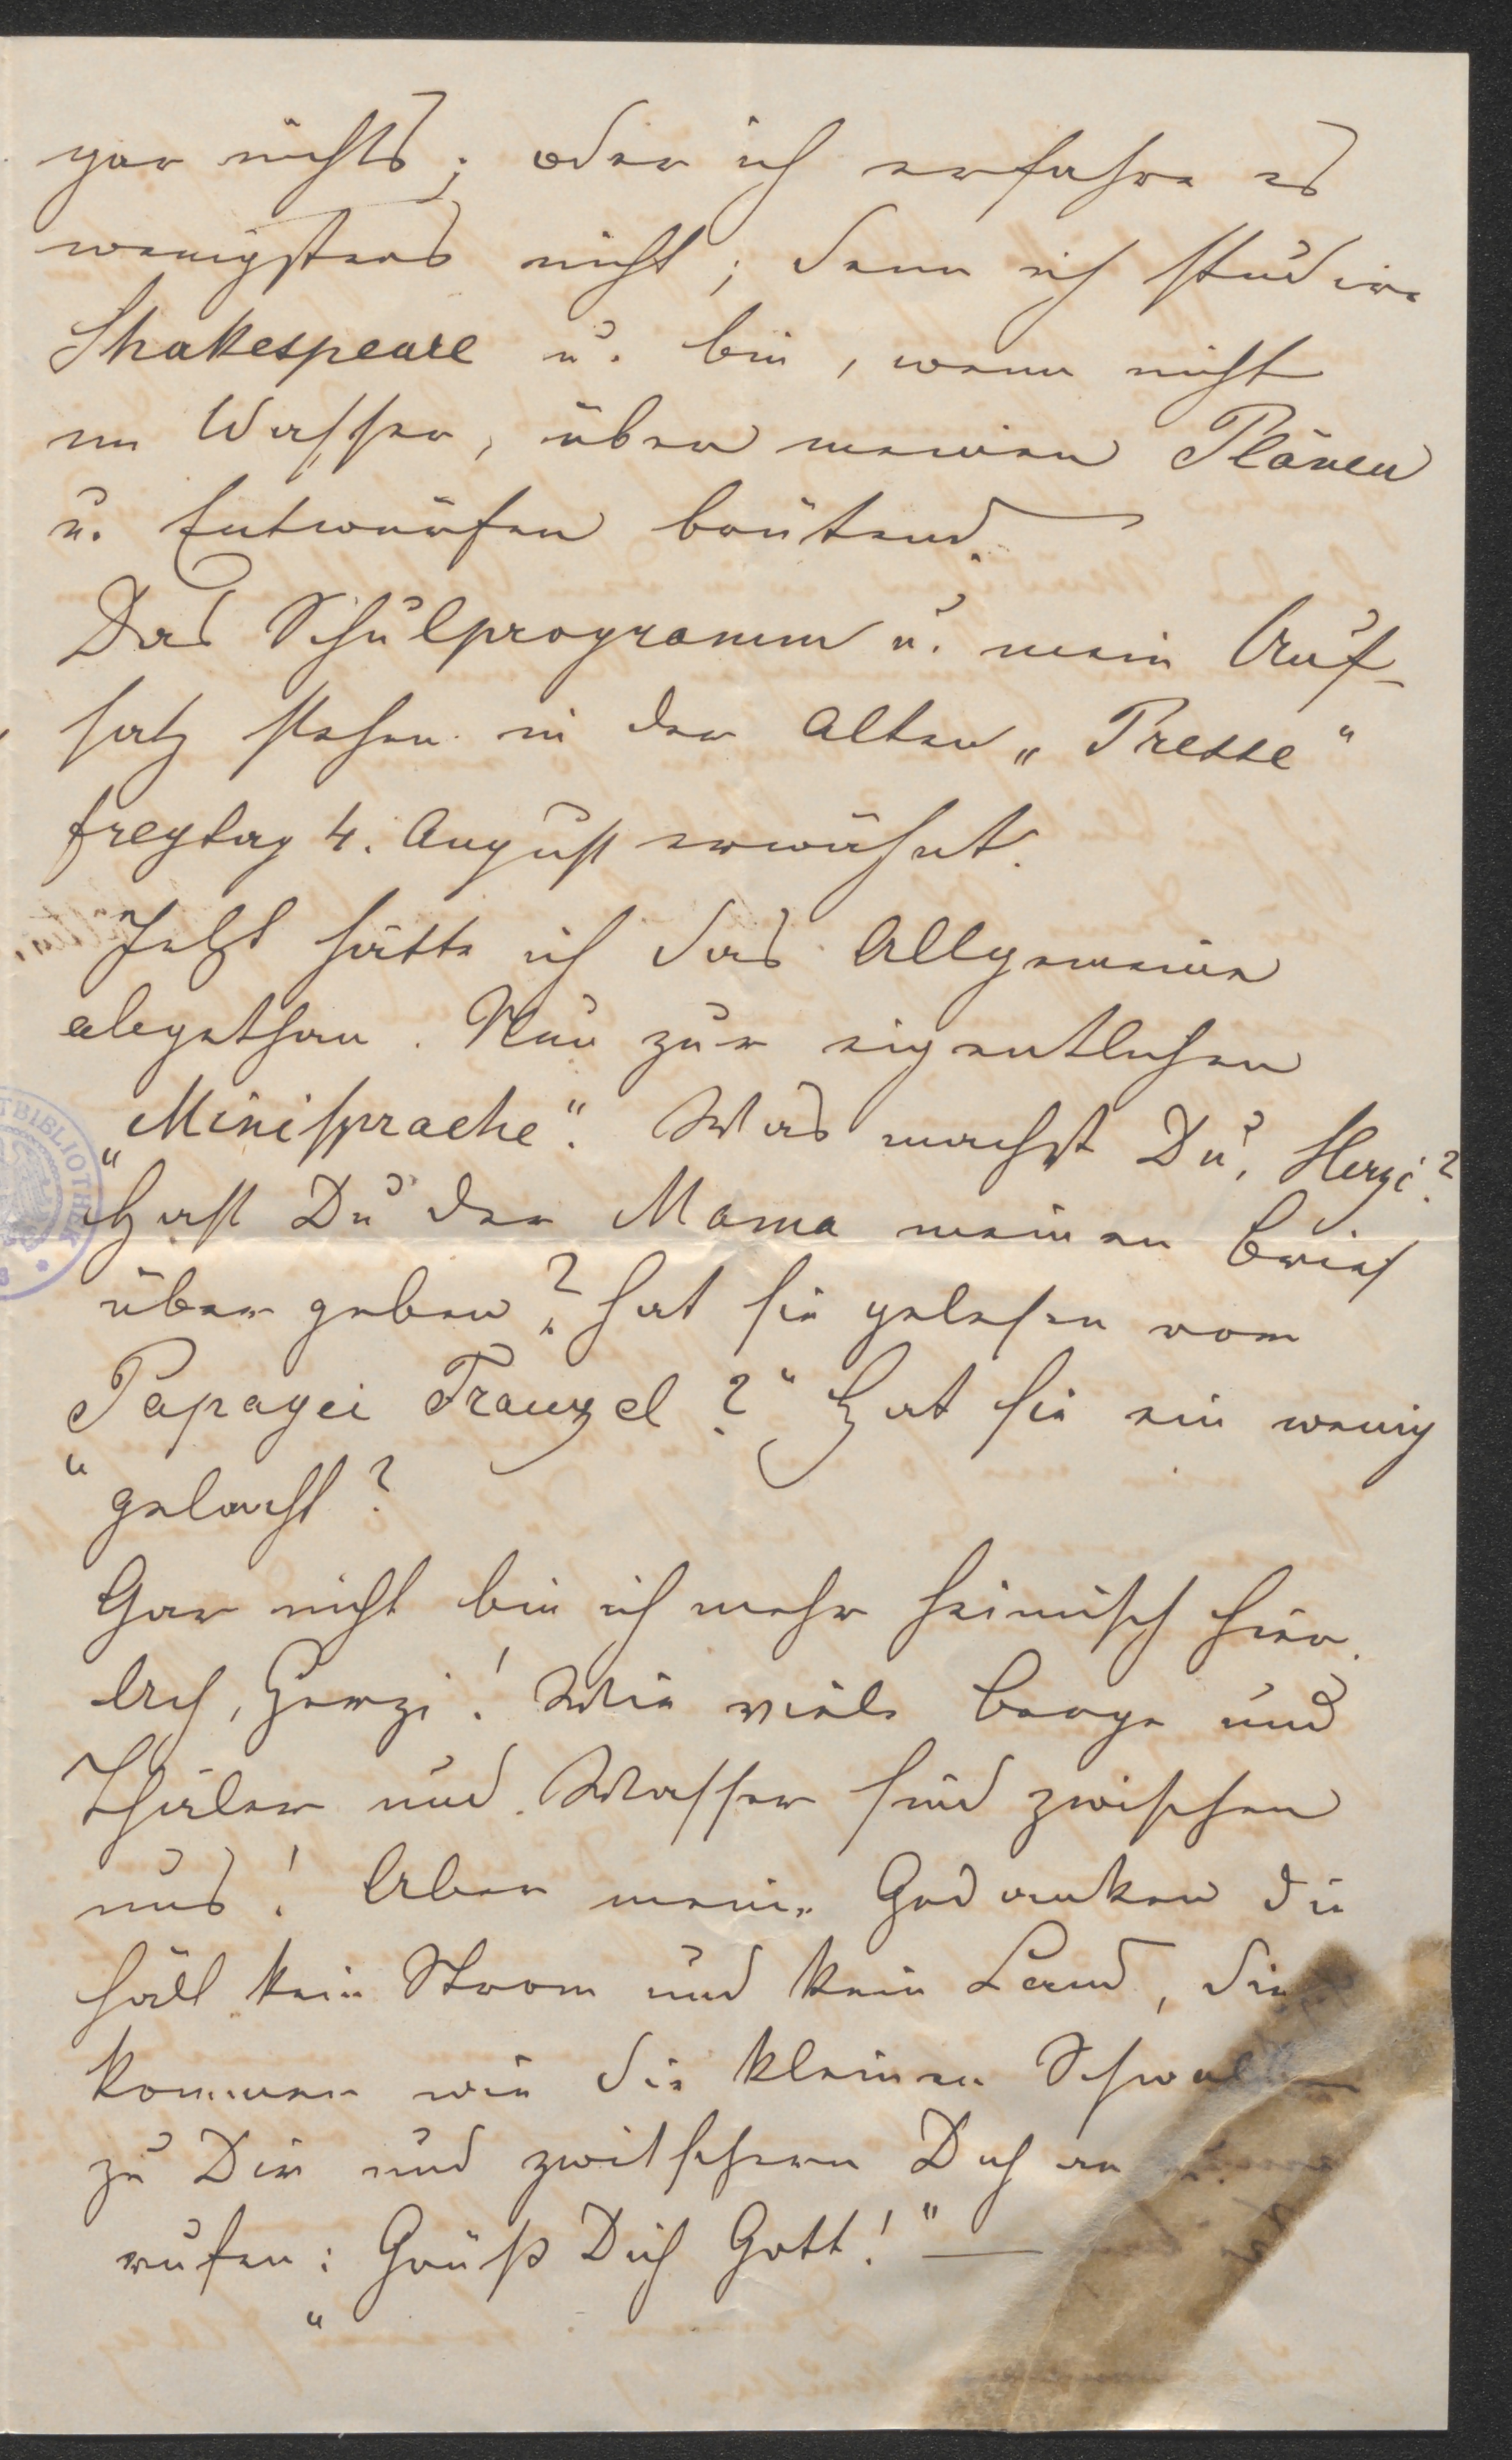 gar nichts; oder ich erfahre es
wenigstens nicht; denn ich studire
Shakespeare u. bin, wenn nicht
im Wasser, über meinen Plänen
u. Entwürfen brütend.
Das Schulprogramm u. mein Auf-
satz stehen in der alten „Presse“
Freytag 4. August erwähnt.
Jetzt hätte ich das Allgemeine
abgethan. Nun zur eigentlichen
„Minisprache“. Was machst Du, Herzi?
Hast Du der Mama meinen Brief
über geben? Hat sie gelesen vom
„Papagei Franzel?“ Hat sie ein wenig
gelacht?
Gar nicht bin ich mehr heimisch hier.
Ach, Herzi! Wie viele Berge und
Thäler und Wasser sind zwischen
uns! Aber meine Gedanken die
hält kein Strom und kein Land, die
kommen wie die kleinen
zu Dir und zwitschern Dich an
rufen: „Grüß Dich Gott!“ —